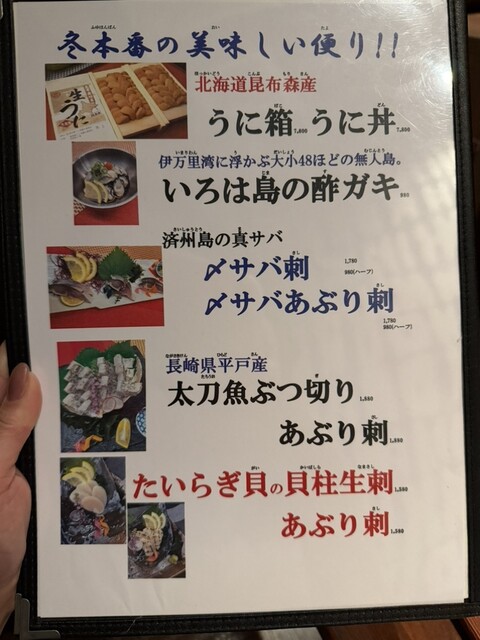 冬本番の美味しい便り!!
北海道昆布森産
うに箱 7,800 うに丼 7,800
伊万里湾に浮かぶ大小48ほどの無人島。
いろは島の酢ガキ
済州島の真サバ
〆サバ刺 1,780
980(ハーフ)
〆サバあぶり刺
1,780
980(ハーフ)
長崎県平戸産
太刀魚ぶつ切り 1,580
あぶり刺 1,580
たいらぎ貝の貝柱生刺 1,580
あぶり刺 1,580
生うに